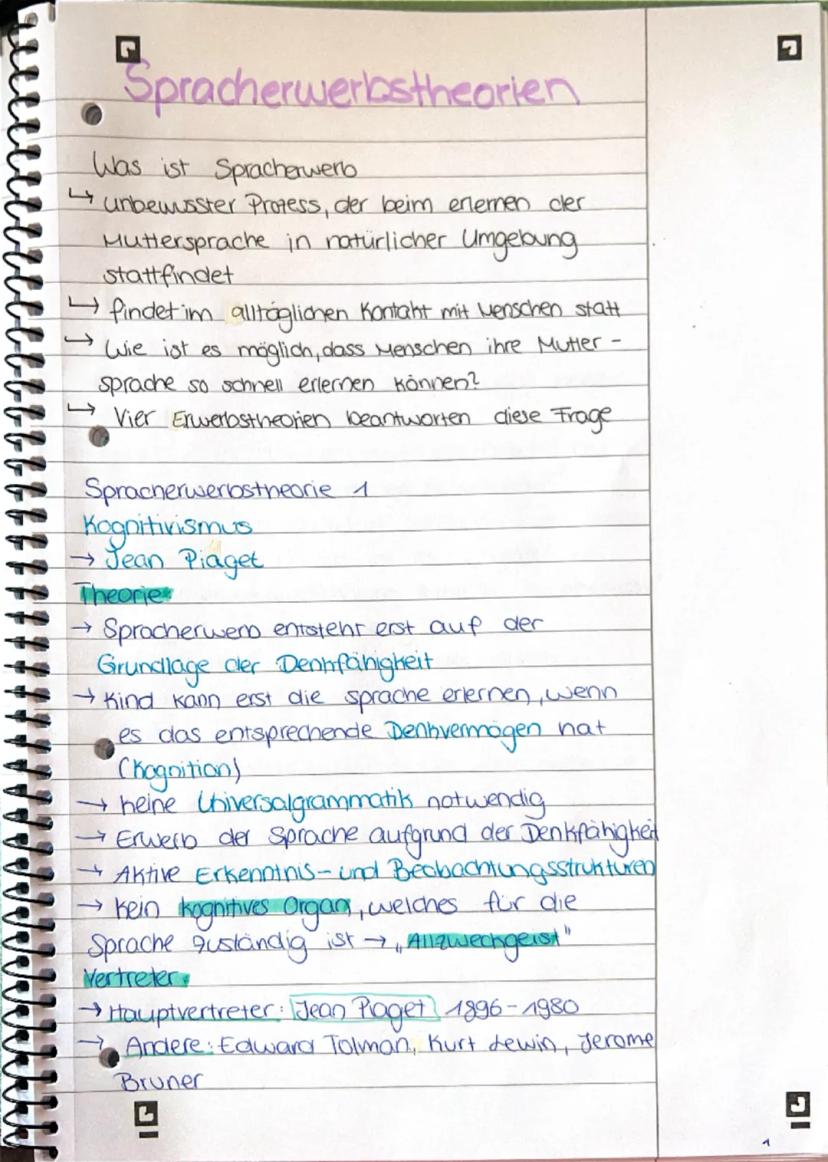 Spracherwerbstheorien
Was ist Spracherwerb
↳ unbewusster Prozess, der beim erlernen der
Muttersprache in natürlicher Umgebung
stattfindet
↳ findet im alltäglichen Kontakt mit Menschen statt
↳ Wie ist es möglich, dass Menschen ihre Mutter-
sprache so schnell erlernen können?
↳ Vier Erwerbstheorien beantworten diese Frage
Spracherwerbstheorie 1
Kognitivismus
→ Jean Piaget
Theorie:
→ Spracherwerb entsteht erst auf der
Grundlage der Denkfähigkeit
→ Kind kann erst die sprache erlernen, wenn
es das entsprechende Denkvermögen hat
(Kognition)
→ keine Universalgrammatik notwendig
→ Erwerb der Sprache aufgrund der Denkfähigkeit
→ Aktive Erkenntnis- und Beobachtungsstrukturen
→ kein kognitives Organ, welches für die
Sprache zuständig ist → „Allzweckgeist"
Vertreter:
→ Hauptvertreter: Jean Piaget 1896-1980
→ Andere: Edward Tolman, Kurt Lewin, Jerome
Bruner
1